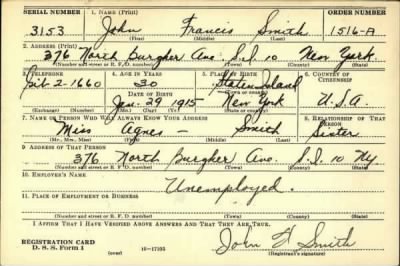 SERIAL NUMBER 1. NAME (Print) ORDER NUMBER
3153 John Francis Smith 1516-A
(First) (Middle) (Last)
2. ADDRESS (Print)
376 North Burgher Ave. S.I. 10 New York
(Number and street or R. F. D. number) (Town) (County) (State)
3. TELEPHONE 4. AGE IN YEARS 5. PLACE OF BIRTH 6. COUNTRY OF CITIZENSHIP
Gib 2-1660 30 Staten Island
DATE OF BIRTH (Town or county)
Jan. 29 1915 New York U.S.A.
(Exchange) (Number) (Mo.) (Day) (Yr.) (State or country)
7. NAME OF PERSON WHO WILL ALWAYS KNOW YOUR ADDRESS 8. RELATIONSHIP OF THAT PERSON
Miss Agnes — Smith Sister
(Mr., Mrs., Miss) (First) (Middle) (Last)
9. ADDRESS OF THAT PERSON
376 North Burgher Ave. S.I. 10 NY
(Number and street or R. F. D. number) (Town) (County) (State)
10. EMPLOYER'S NAME
Unemployed.
11. PLACE OF EMPLOYMENT OR BUSINESS
(Number and street or R. F. D. number) (Town) (County) (State)
I AFFIRM THAT I HAVE VERIFIED ABOVE ANSWERS AND THAT THEY ARE TRUE.
REGISTRATION CARD
D. S. S. Form 1 (over) 16-17105 John F Smith
(Registrant's signature)